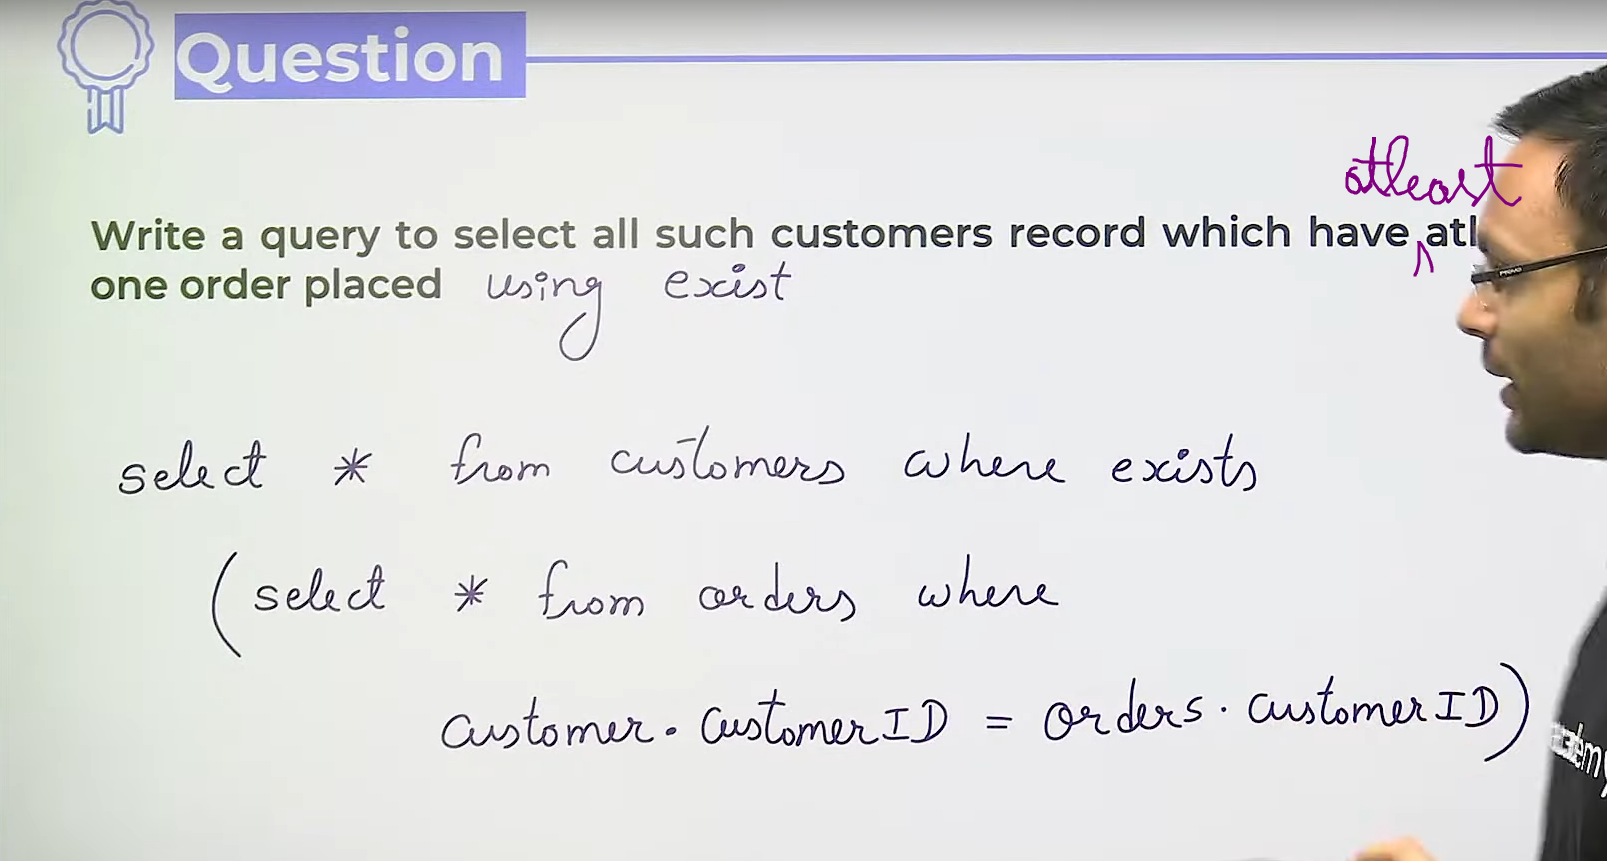 Question
atleast
Write a query to select all such customers record which have atl
one order placed using exist
select * from customers where exists
(select * from orders where
customer.customerID = orders.customerID)